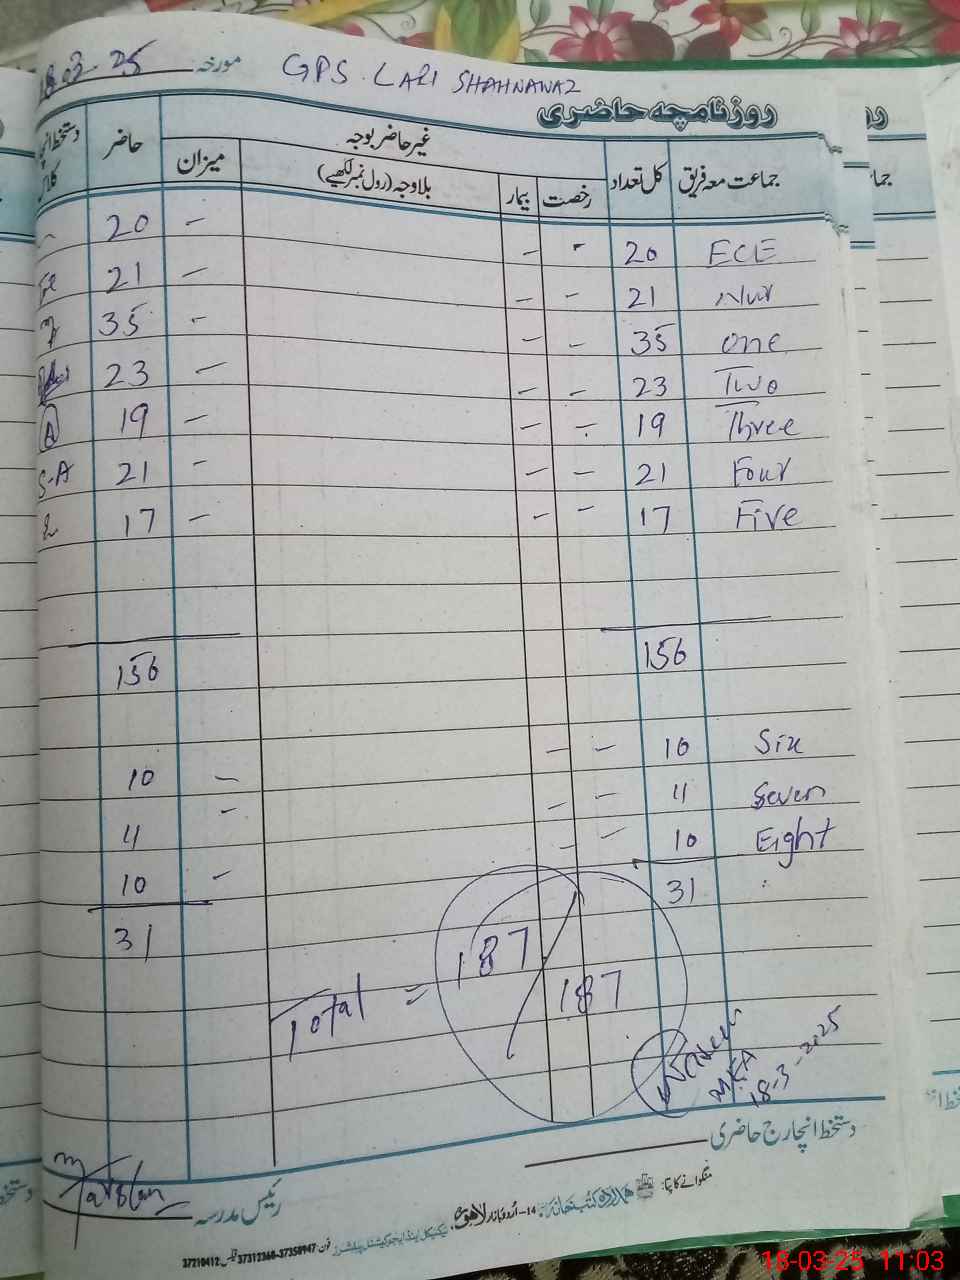 18-03-25 مورخہ GPS. LARI SHAHNAWAZ
روزنامچہ حاضری
جماعت معہ فریق کل تعداد غیر حاضر بوجہ حاضر دستخط انچارج
رخصت بیمار بلاوجہ (رول نمبر لکھیے) میزان
ECE 20 - - - 20
Nur 21 - - - 21
one 35 - - - 35
Two 23 - - - 23
Three 19 - - - 19 A
Four 21 - - - 21 S-A
Five 17 - - - 17
156 156
Six 10 - - - 10
Seven 11 - - - 11
Eight 10 - - - 10
31 31
Total = 187/187
MEA
18-3-2025
دستخط انچارج حاضری
رئیس مدرسہ
منگوانے کا پتا: ہمدرد کتب خانہ 14- اردو بازار لاہور
فون 37358947-37312360 فیکس 37210412
18-03-25 11:03